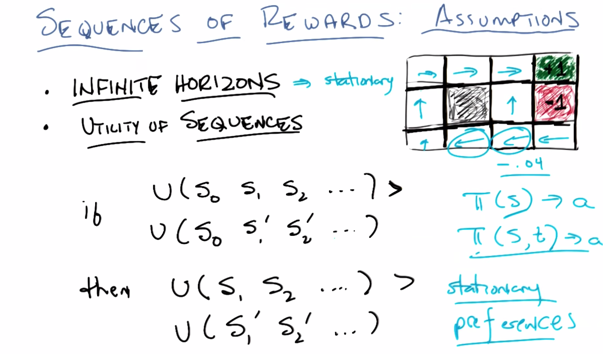 SEQUENCES OF REWARDS: ASSUMPTIONS
· INFINITE HORIZONS ⇒ stationary
· UTILITY OF SEQUENCES
+1
-1
-.04
if U(S₀ S₁ S₂ ...) >
U(S₀ S₁' S₂' ...)
π(s) → a
π(s,t) → a
then U(S₁ S₂ ...) >
U(S₁' S₂' ...)
stationary
preferences